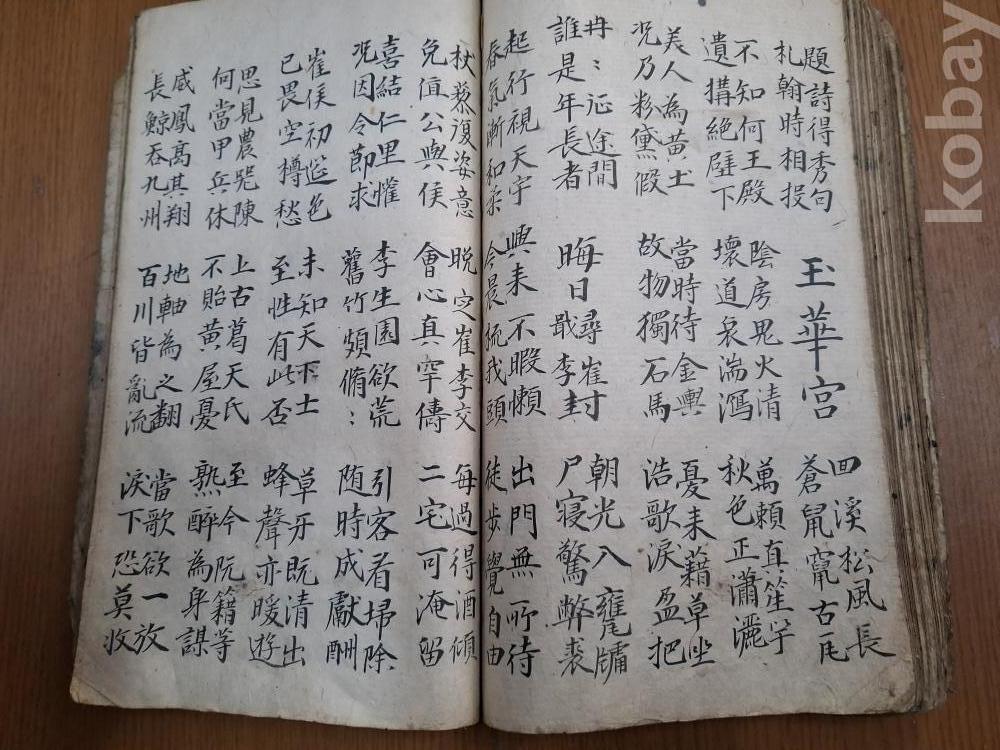 題詩得秀句
札翰時相投
玉華宮
囬溪松風長
蒼鼠竄古瓦
不知何王殿
遺搆絕壁下
陰房鬼火清
壞道哀湍瀉
萬籟真笙竽
秋色正瀟灑
美人為黃土
况乃粉黛假
當時待金輿
故物獨石馬
憂来藉草坐
浩歌淚盈把
冉〻征途間
誰是年長者
晦日尋崔
戢李封
朝光入甕牖
尸寢驚弊裘
起行視天宇
春氣漸和柔
興来不暇懶
今晨梳我頭
出門無所待
徒步覺自由
杖藜復姿意
免值公與侯
晚定崔李交
會心真罕儔
每過得酒傾
二宅可淹留
喜結仁里懽
况因令節求
李生園欲荒
舊竹頗脩〻
引客看掃除
随時成獻酬
崔侯初筵色
已畏空樽愁
未知天下士
至性有此否
草牙既清出
蜂聲亦暖遊
思見農噐陳
何當甲兵休
上古葛天氏
不貽黃屋憂
至今阮籍等
熟醉為身謀
威鳳高其翔
長鯨吞九州
地軸為之翻
百川皆亂流
當歌欲一放
淚下恐莫收
kobay